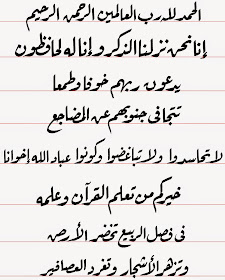 الحمد لله رب العالمين الرحمن الرحيم
إنا نحن نزلنا الذكر وإنا له لحافظون
يدعون ربهم خوفا وطمعا
تتجافى جنوبهم عن المضاجع
لا تحاسدوا ولا تباغضوا وكونوا عباد الله إخوانا
خيركم من تعلم القرآن وعلمه
فى فصل الربيع تخضر الأرض
وتزهر الأشجار وتغرد العصافير